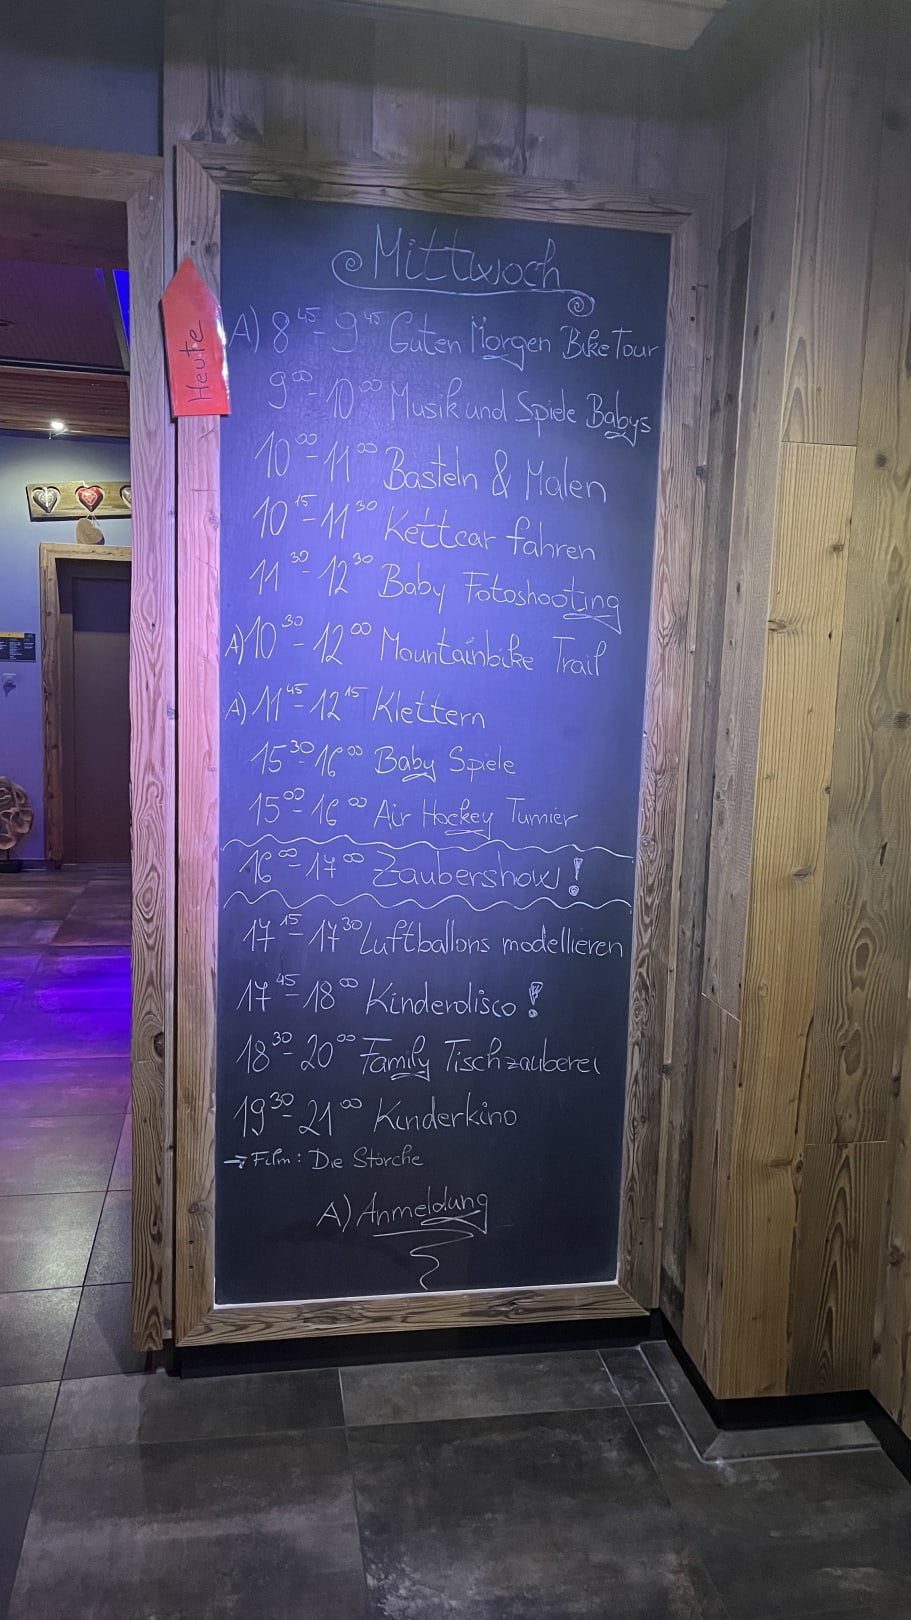 Mittwoch
Heute
A) 8⁴⁵ - 9⁴⁵ Guten Morgen Bike Tour
9⁰⁰ - 10⁰⁰ Musik und Spiele Babys
10⁰⁰ - 11⁰⁰ Basteln & Malen
10¹⁵ - 11³⁰ Kettcar fahren
11³⁰ - 12³⁰ Baby Fotoshooting
A) 10³⁰ - 12⁰⁰ Mountainbike Trail
A) 11⁴⁵ - 12¹⁵ Klettern
15³⁰ - 16⁰⁰ Baby Spiele
15⁰⁰ - 16⁰⁰ Air Hockey Turnier
16⁰⁰ - 17⁰⁰ Zaubershow!
17¹⁵ - 17³⁰ Luftballons modellieren
17⁴⁵ - 18⁰⁰ Kinderdisco!
18³⁰ - 20⁰⁰ Family Tischzauberei
19³⁰ - 21⁰⁰ Kinderkino
→ Film: Die Störche
A) Anmeldung